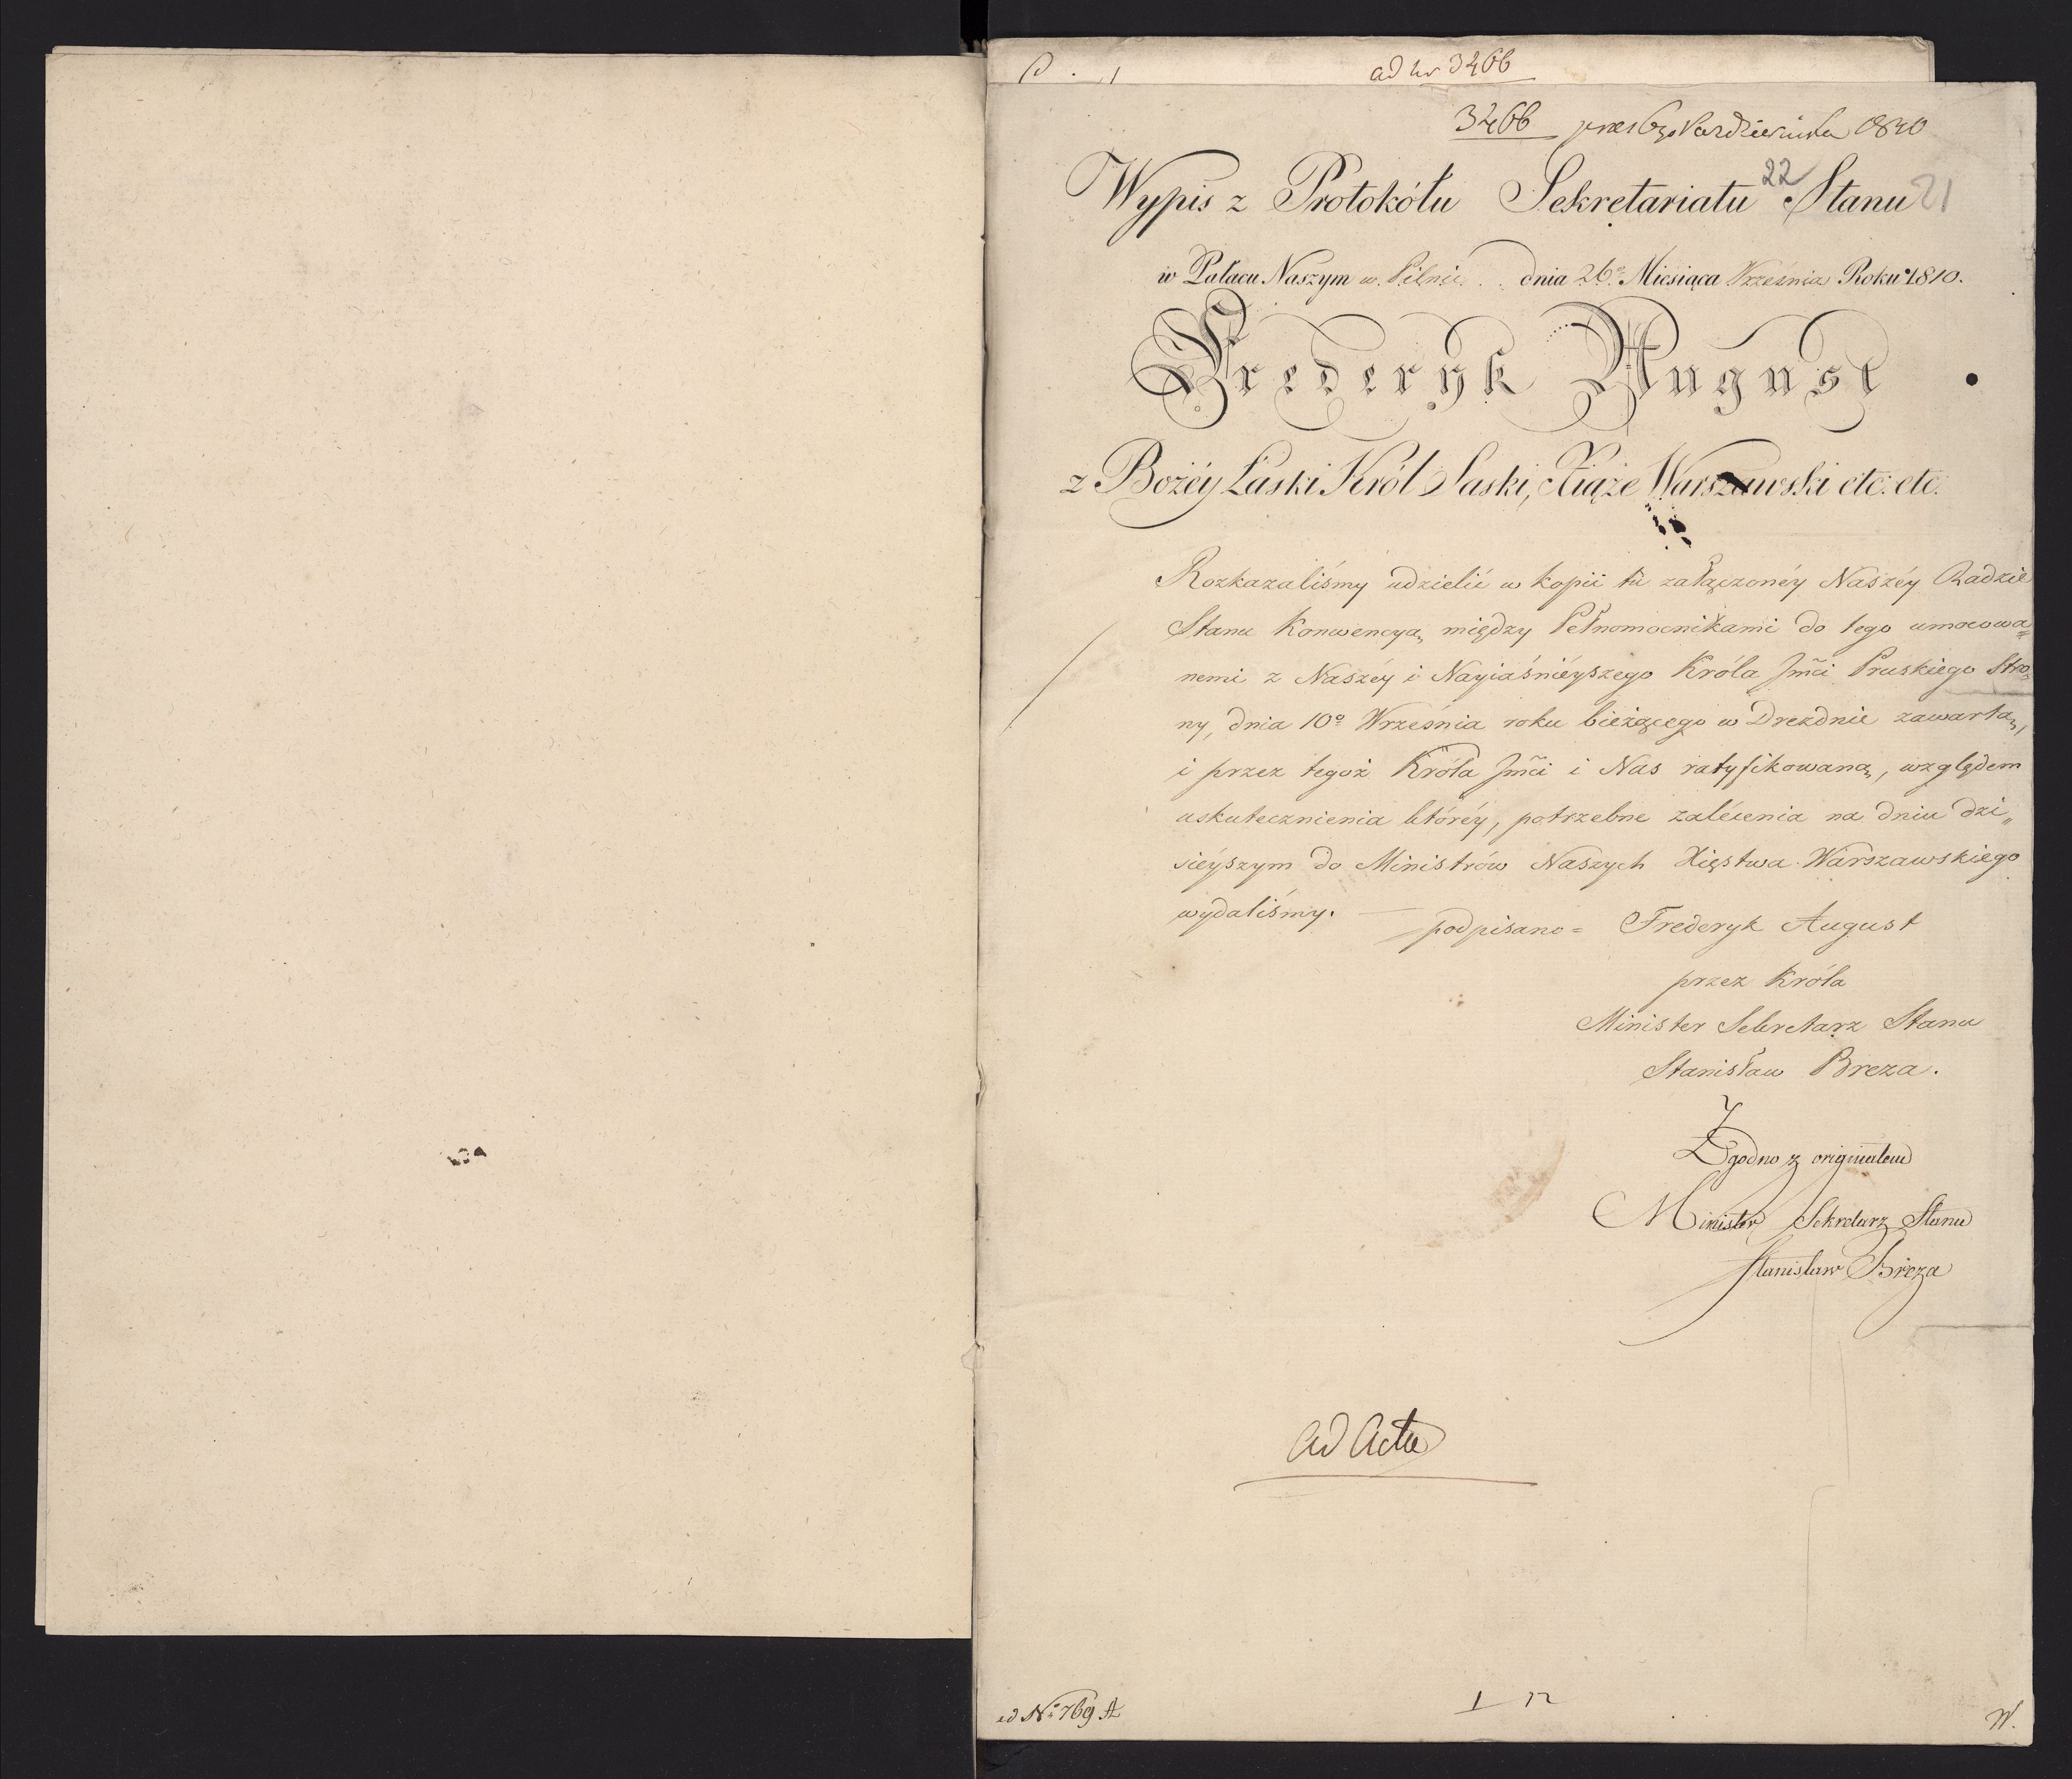 ad nr 3466
3466 pras 6go Pazdziernika 1810
22
Wypis z Protokółu Sekretariatu Stanu 21
w Pałacu Naszym w Pilnic.. dnia 26o Miesiąca Września Roku 1810.
Frederyk August
z Bożéy Łaski Król Saski, Xiąże Warszawski etc: etc:
Rozkazaliśmy udzielić w kopii tu załączonéy Naszéy Radzie
Stanu Konwencyą, między Pełnomocnikami do tego umocowa=
nemi z Naszéy i Nayiaśniéyszego Króla Jmci Pruskiego Stro=
ny, dnia 10o Września roku bieżącego w Dreźdnie zawartą,
i przez tegoż Króla Jmci i Nas ratyfikowaną, względem
uskutecznienia któréy, potrzebne zalécenia na dniu dzi„
siéyszym do Ministrów Naszych Xięstwa Warszawskiego
wydaliśmy.
podpisano = Frederyk August
przez Króla
Minister Sekretarz Stanu
Stanisław Breza.
Zgodno z originałem
Minister Sekretarz Stanu
Stanisław Breza
ad Acta
ad No 769 A
W.